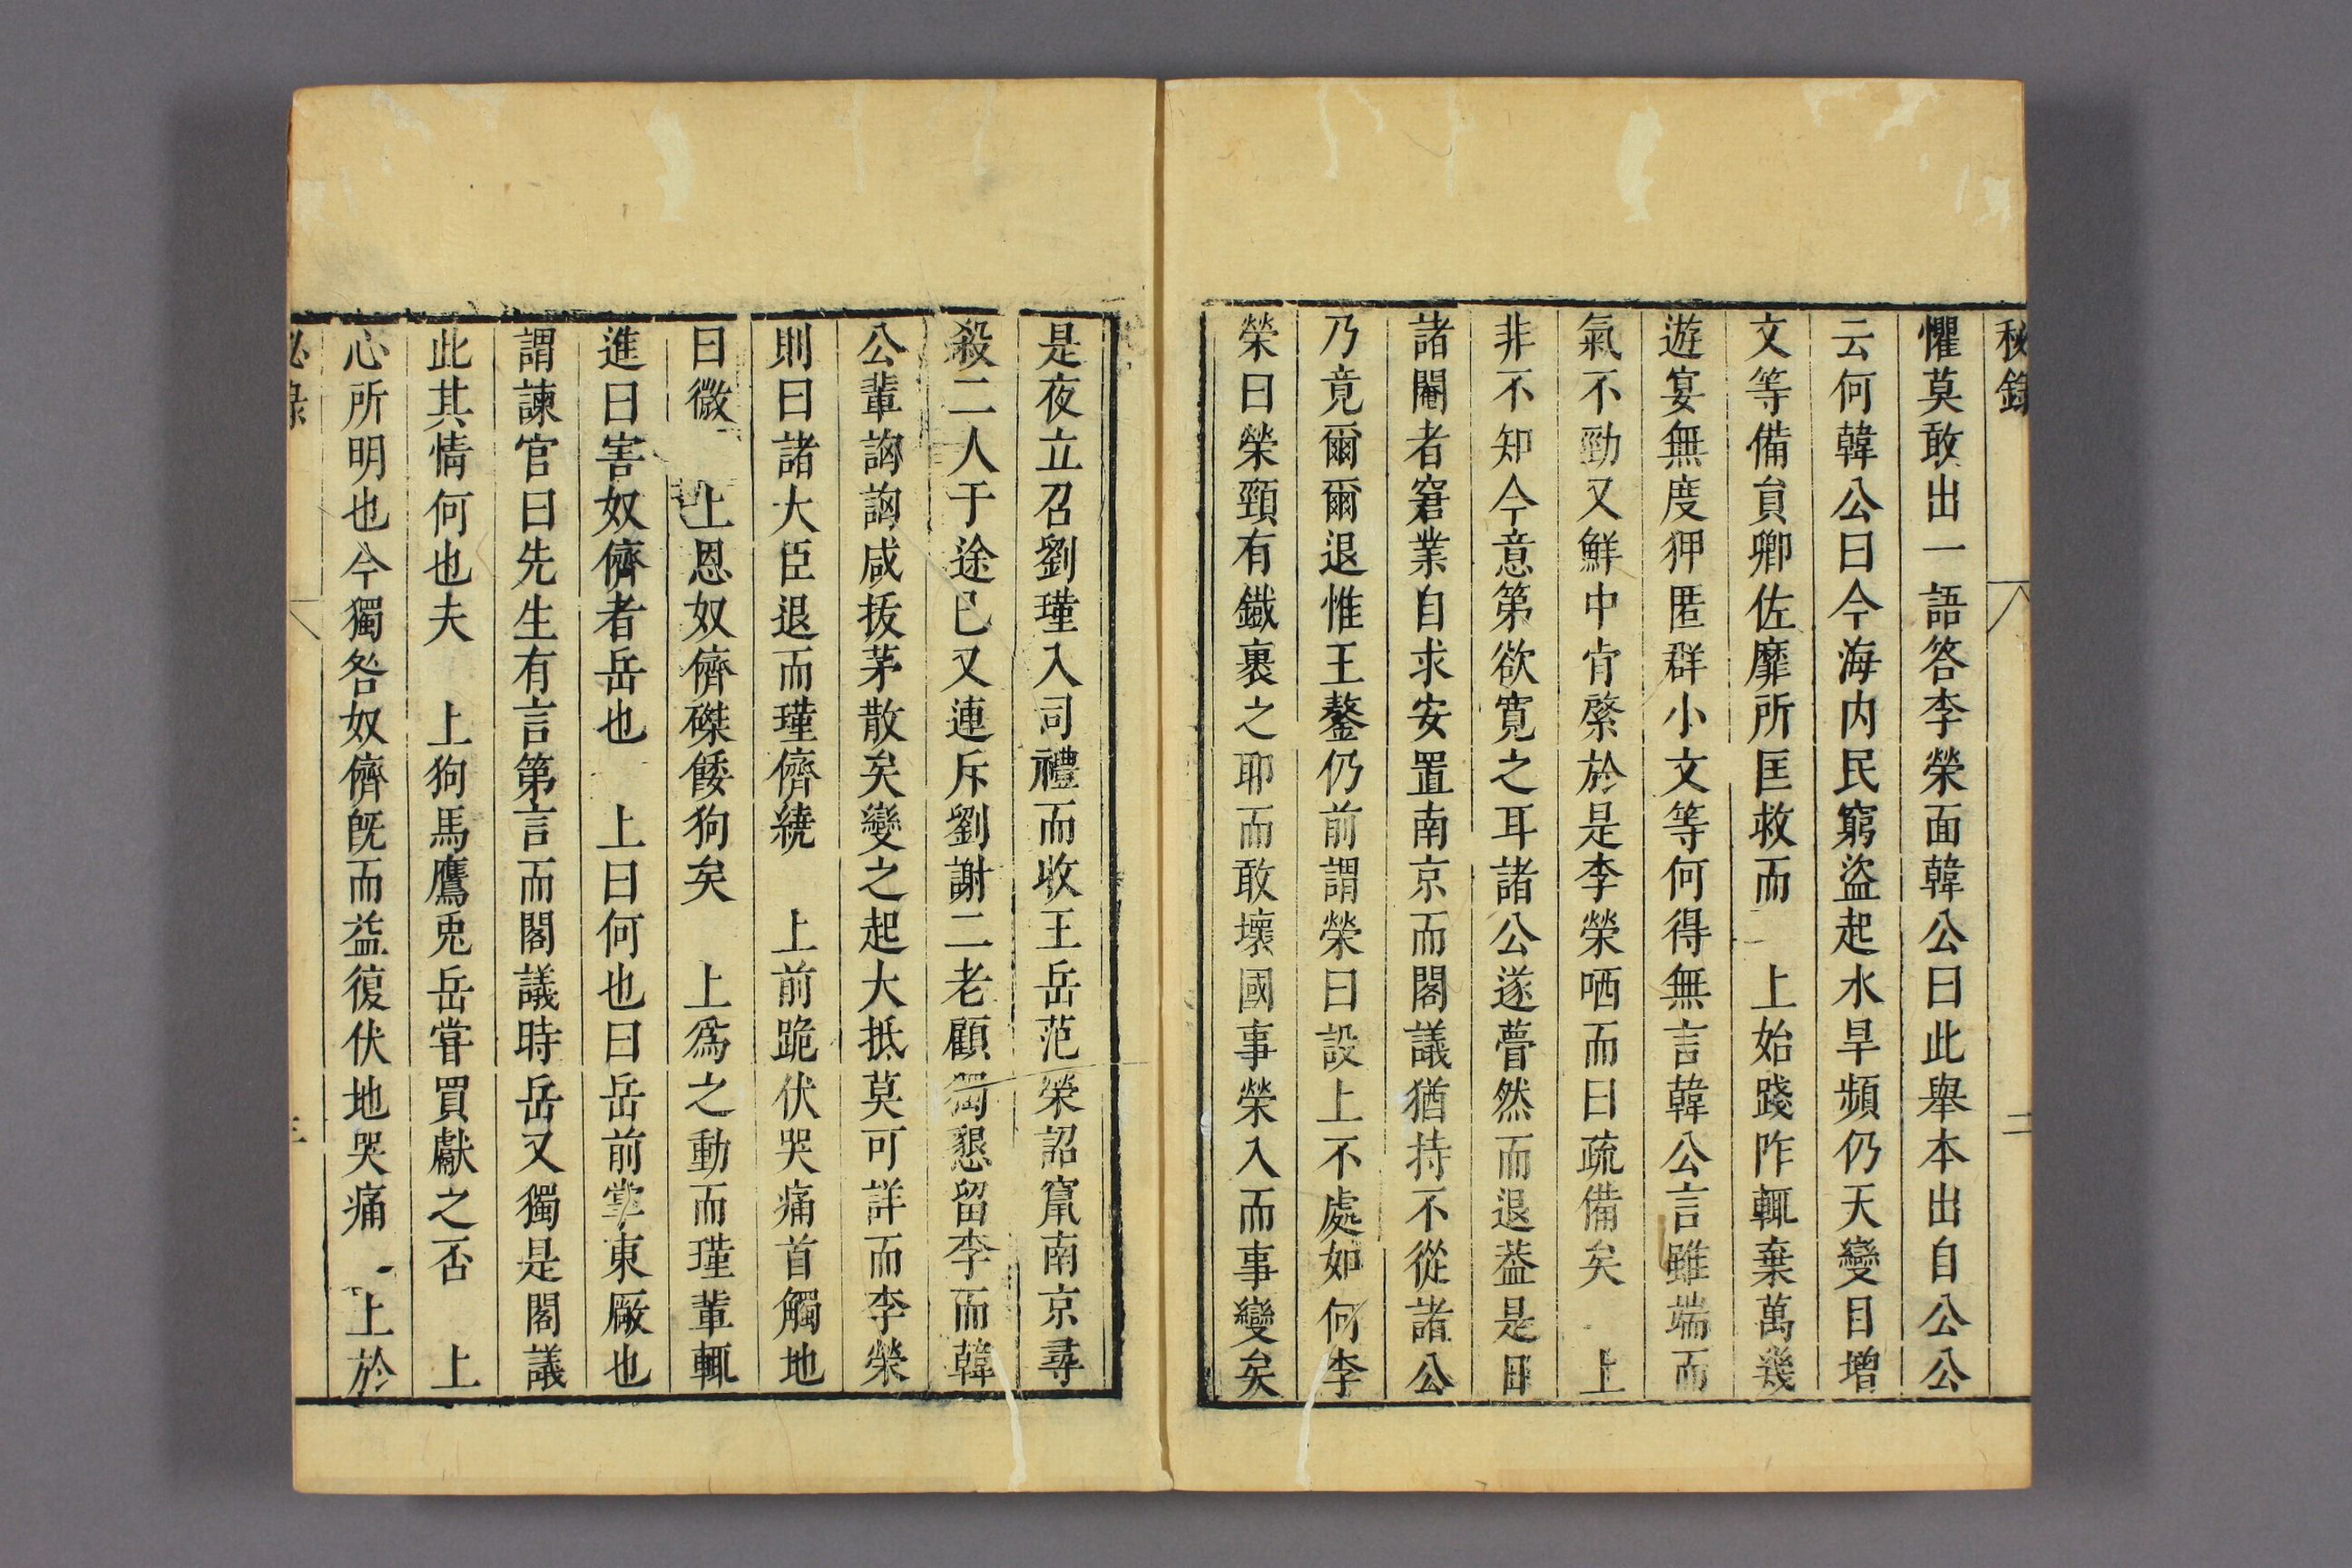 秘錄
二
懼莫敢出一語答李榮面韓公曰此舉本出自公公
云何韓公曰今海内民窮盜起水旱頻仍天變日增
文等備貟卿佐靡所匡救而　上始踐阼輒棄萬幾
遊宴無度狎匿群小文等何得無言韓公言雖端而
氣不勁又鮮中肯綮於是李榮哂而曰疏備矣　上
非不知今意第欲寬之耳諸公遂薨然而退葢是日
諸閹者窘業自求安置南京而閣議猶持不從諸公
乃竟爾爾退惟王鏊仍前謂榮曰設上不處如何李
榮曰榮頸有鐵裹之耶而敢壞國事榮入而事變矣
是夜立召劉瑾入司禮而收王岳范榮詔竄南京尋
殺二人于途已又連斥劉謝二老顧獨懇留李而韓
公輩訩訩咸抜茅散矣變之起大抵莫可詳而李榮
則曰諸大臣退而瑾儕繞　上前跪伏哭痛首觸地
曰微　上恩奴儕磔餧狗矣　上爲之動而瑾輩輒
進曰害奴儕者岳也　上曰何也曰岳前掌東厰也
謂諫官曰先生有言第言而閣議時岳又獨是閣議
此其情何也夫　上狗馬鷹兎岳甞買獻之否　上
心所明也今獨咎奴儕旣而益復伏地哭痛　上於
秘錄
三